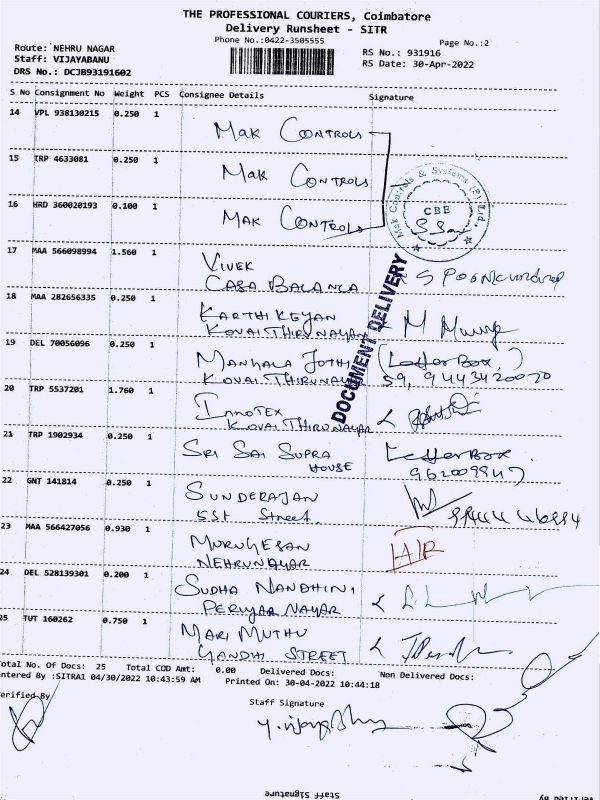 THE PROFESSIONAL COURIERS, Coimbatore
Delivery Runsheet - SITR
Phone No.:0422-3505555
Page No.:2
Route: NEHRU NAGAR
RS No.: 931916
Staff: VIJAYABANU
RS Date: 30-Apr-2022
DRS No.: DCJB93191602
S No Consignment No Weight PCS Consignee Details Signature
14 VPL 938130215 0.250 1 MAK CONTROLS
15 TRP 4633081 0.250 1 MAK CONTROLS
16 HRD 360020193 0.100 1 MAK CONTROLS
Mak Controls & Systems (P) Ltd.,
CBE
17 MAA 566098994 1.560 1 VIVEK
CASA BALANCA
18 MAA 282656335 0.250 1 KARTHIKEYAN
KOVAITHIRUNAYAR M
DOCUMENT DELIVERY
19 DEL 70056096 0.250 1 MANGALA JOTHI (Letter Box)
KOVAITHIRUNAYAR 59, 9443420070
20 TRP 5537201 1.760 1 INNOTEX
KOVAITHIRUNAYAR
21 TRP 1902934 0.250 1 SRI SAI SUPRA Letter Box.
HOUSE
22 GNT 141814 0.250 1 SUNDERAJAN
SST Street.
23 MAA 566427056 0.930 1 MURUGESAN
NEHRUNAYAR
24 DEL 528139301 0.200 1 SUDHA NANDHINI
PERIYAR NAYAR
25 TUT 160262 0.750 1 MARI MUTHU
GANDHI STREET
Total No. Of Docs: 25 Total COD Amt: 0.00 Delivered Docs: Non Delivered Docs:
Entered By :SITRA1 04/30/2022 10:43:59 AM Printed On: 30-04-2022 10:44:18
Verified By
Staff Signature
Staff Signature
Verified By